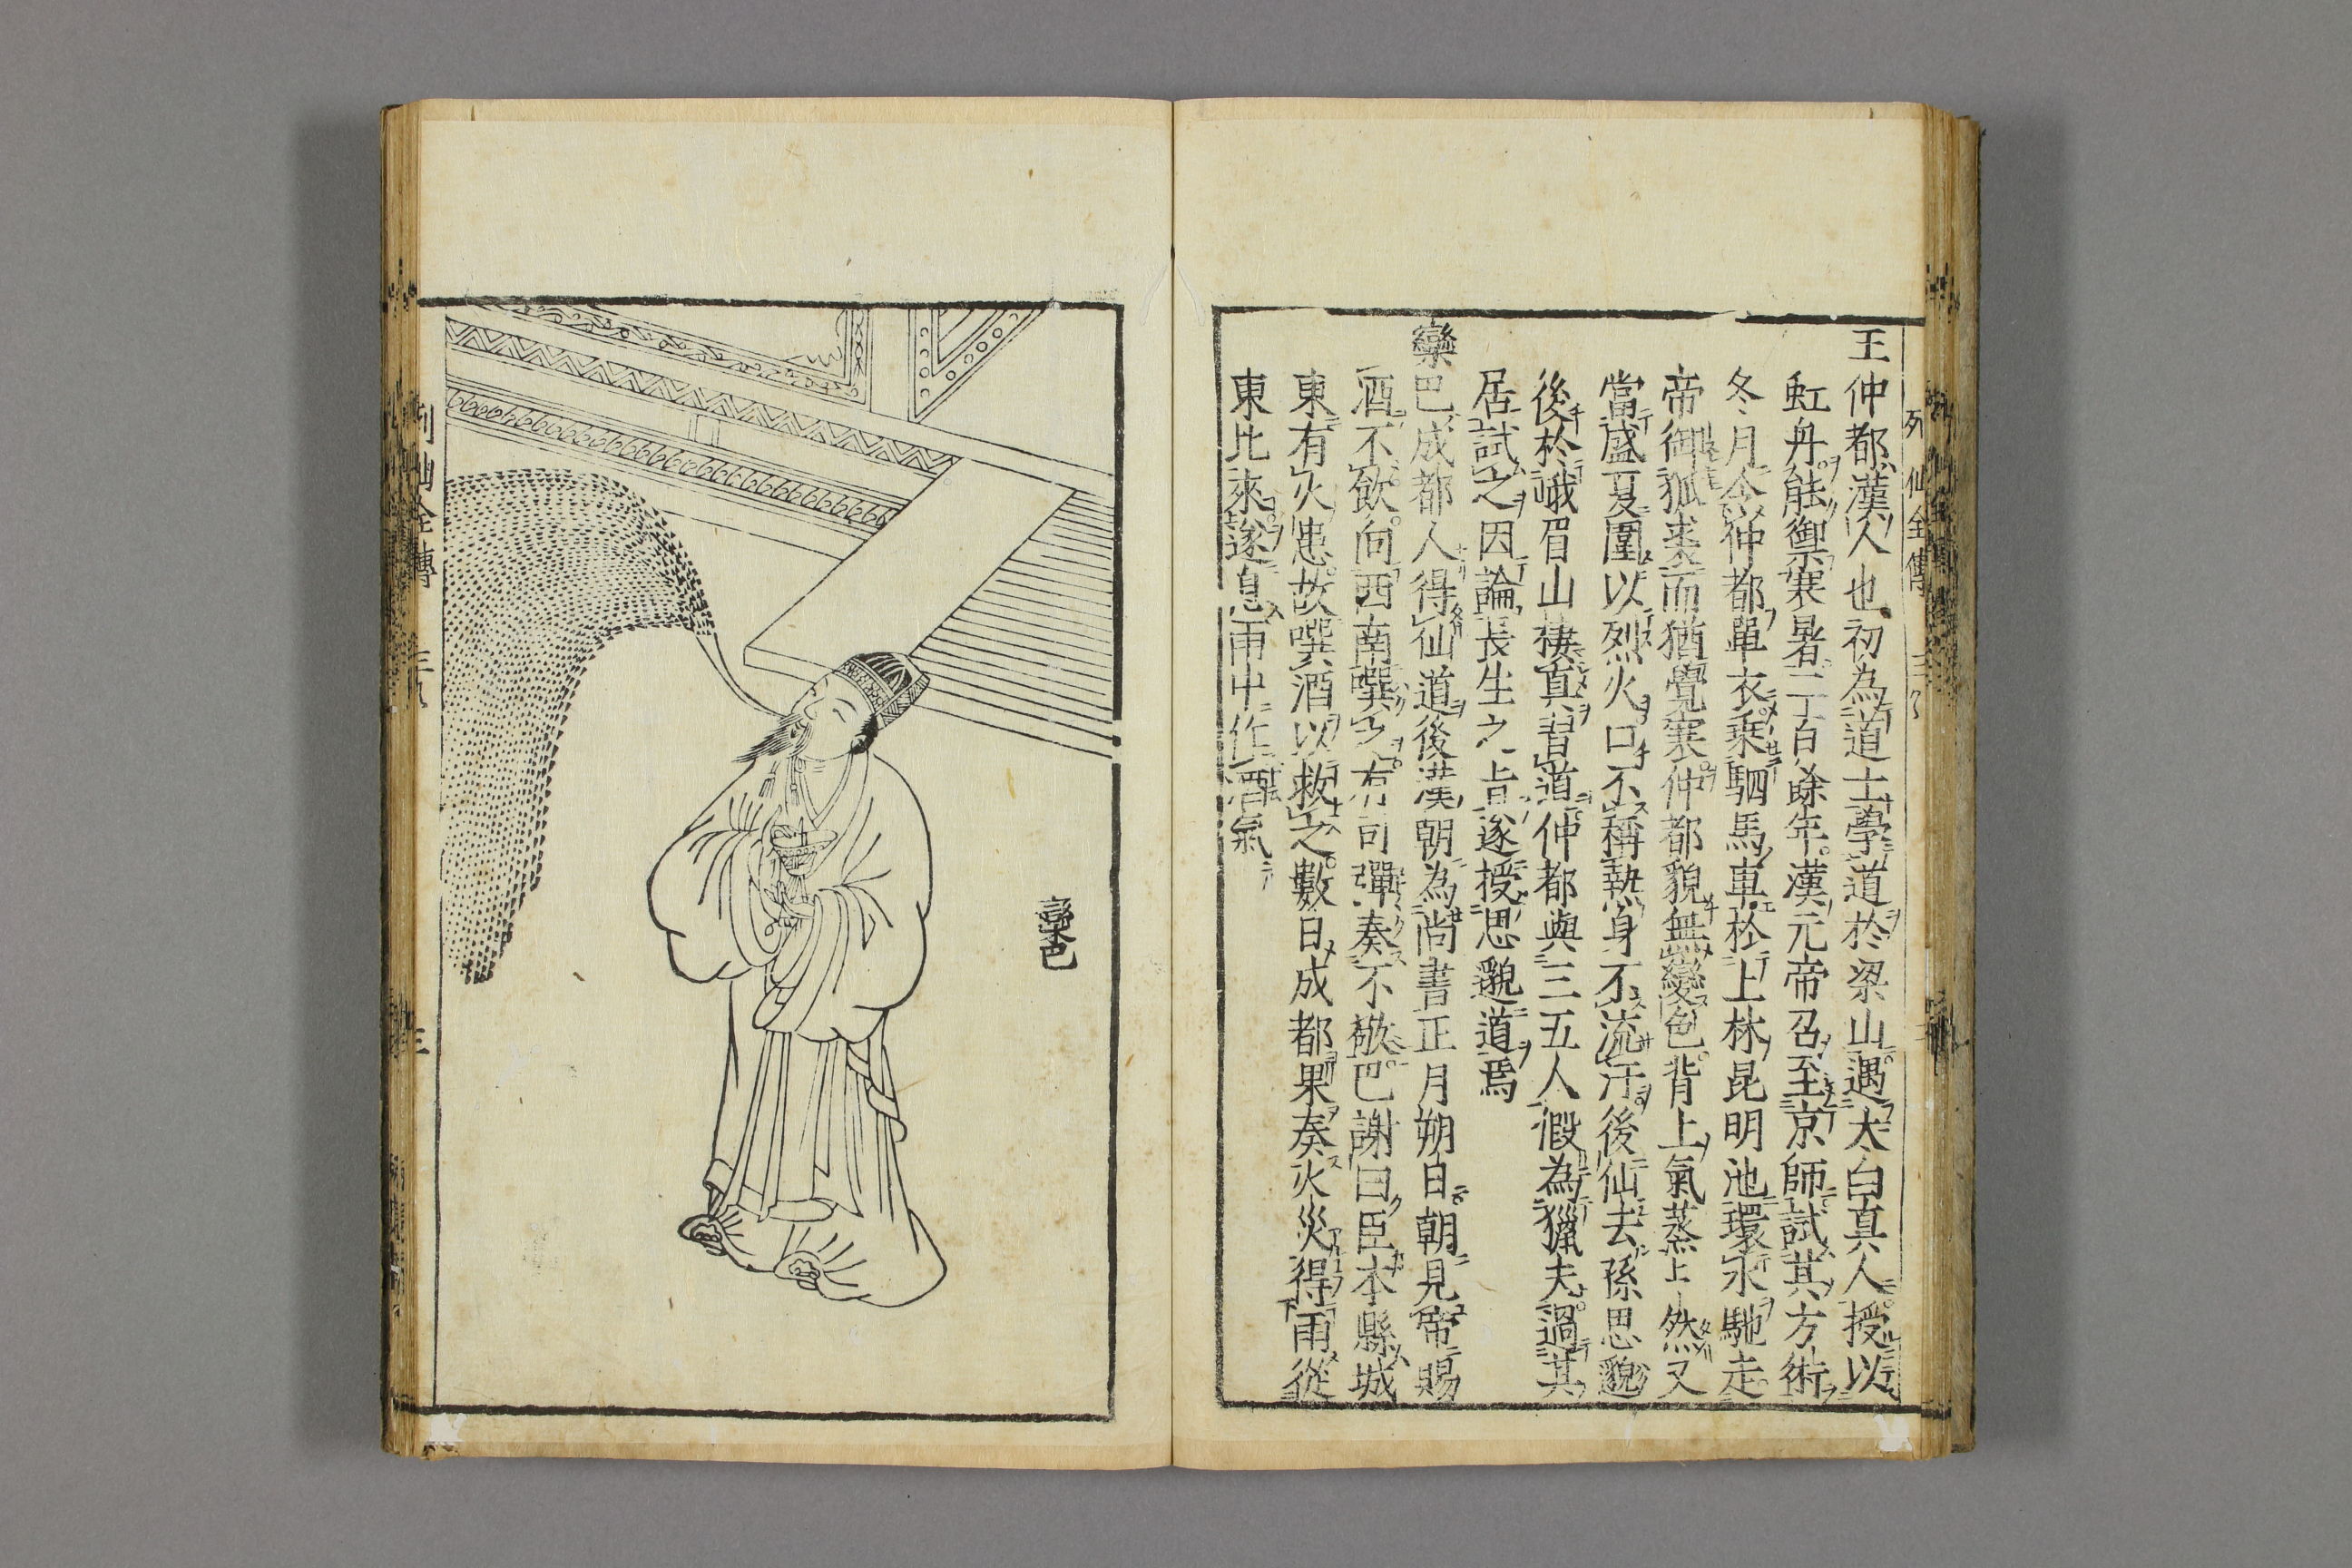 列仙全傳
王仲都漢人也初為道士學道於梁山遇太白真人授以
虹丹能禦寒暑二百餘年漢元帝召至京師試其方術
冬月令仲都單衣乘駟馬車於上林昆明池環氷馳走
帝御狐裘而猶覺寒仲都貌無變色背上氣蒸上然又
當盛夏圍以烈火口不稱熱身不流汗後仙去孫思邈
後於峨眉山棲真習道仲都與三五人假為獵夫過其
居試之因論長生之旨遂授思邈道焉
欒巴成都人得仙道後漢朝為尚書正月朔日朝見帝賜
酒不飲向西南噀之有司彈奏不敬巴謝曰臣本縣城
東有火患故噀酒以救之數日成都果奏火災得雨從
東北來遂息雨中作酒氣
欒巴
列仙全傳